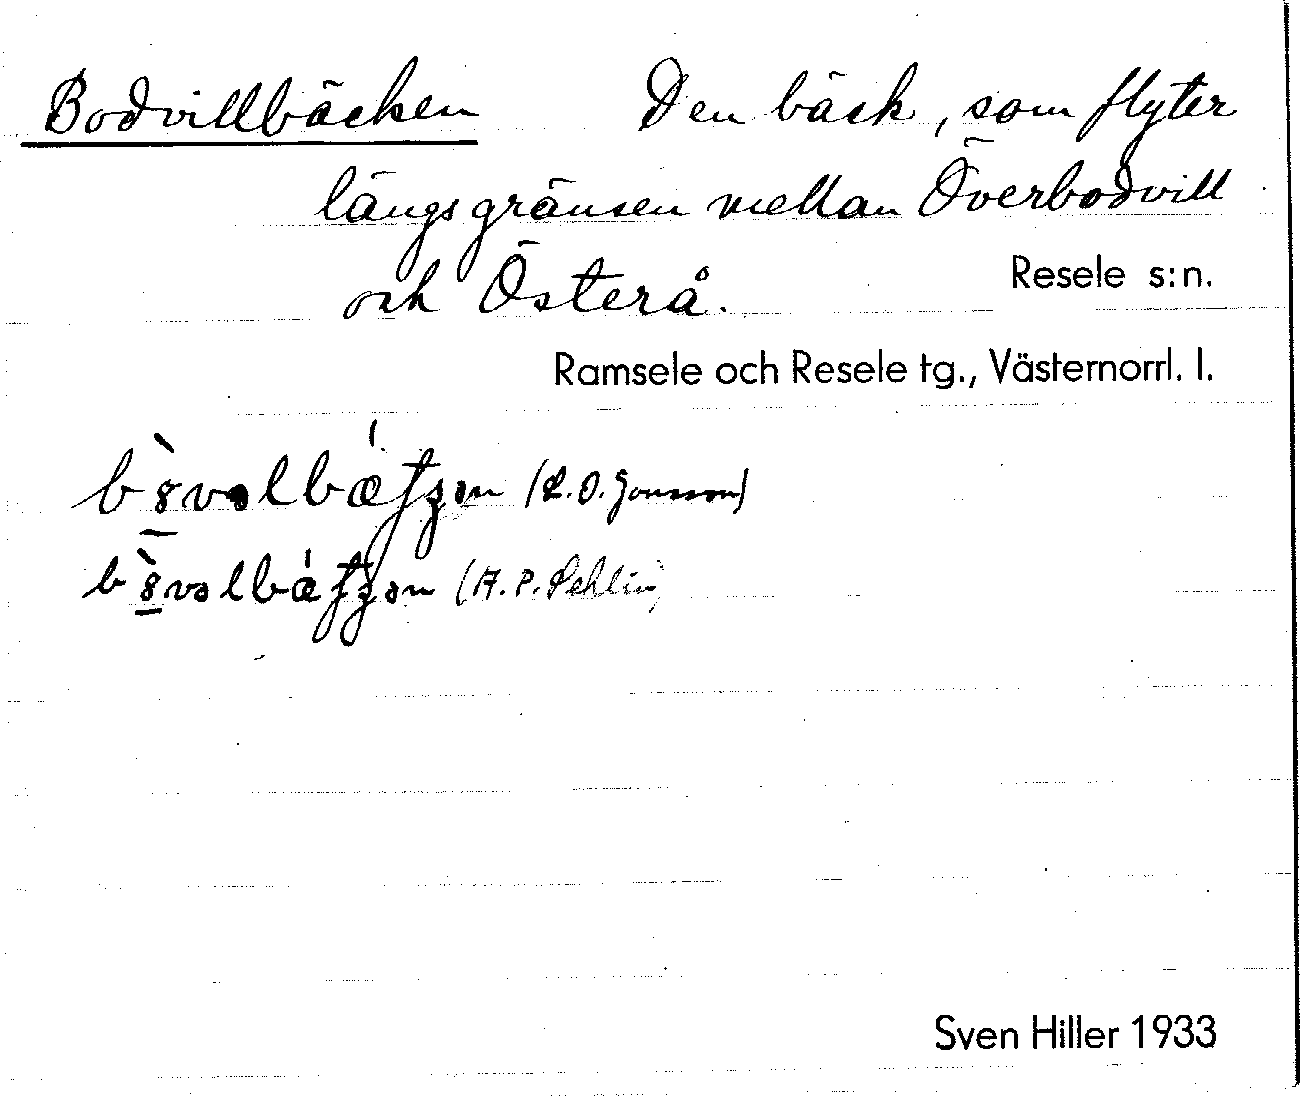 Bodvillbäcken Den bäck, som flyter
längs gränsen mellan Överbodvill
och Österå.
Resele s:n.
Ramsele och Resele tg., Västernorrl. l.
(L. O. Jonsson)
(A. P. Sehlin)
Sven Hiller 1933